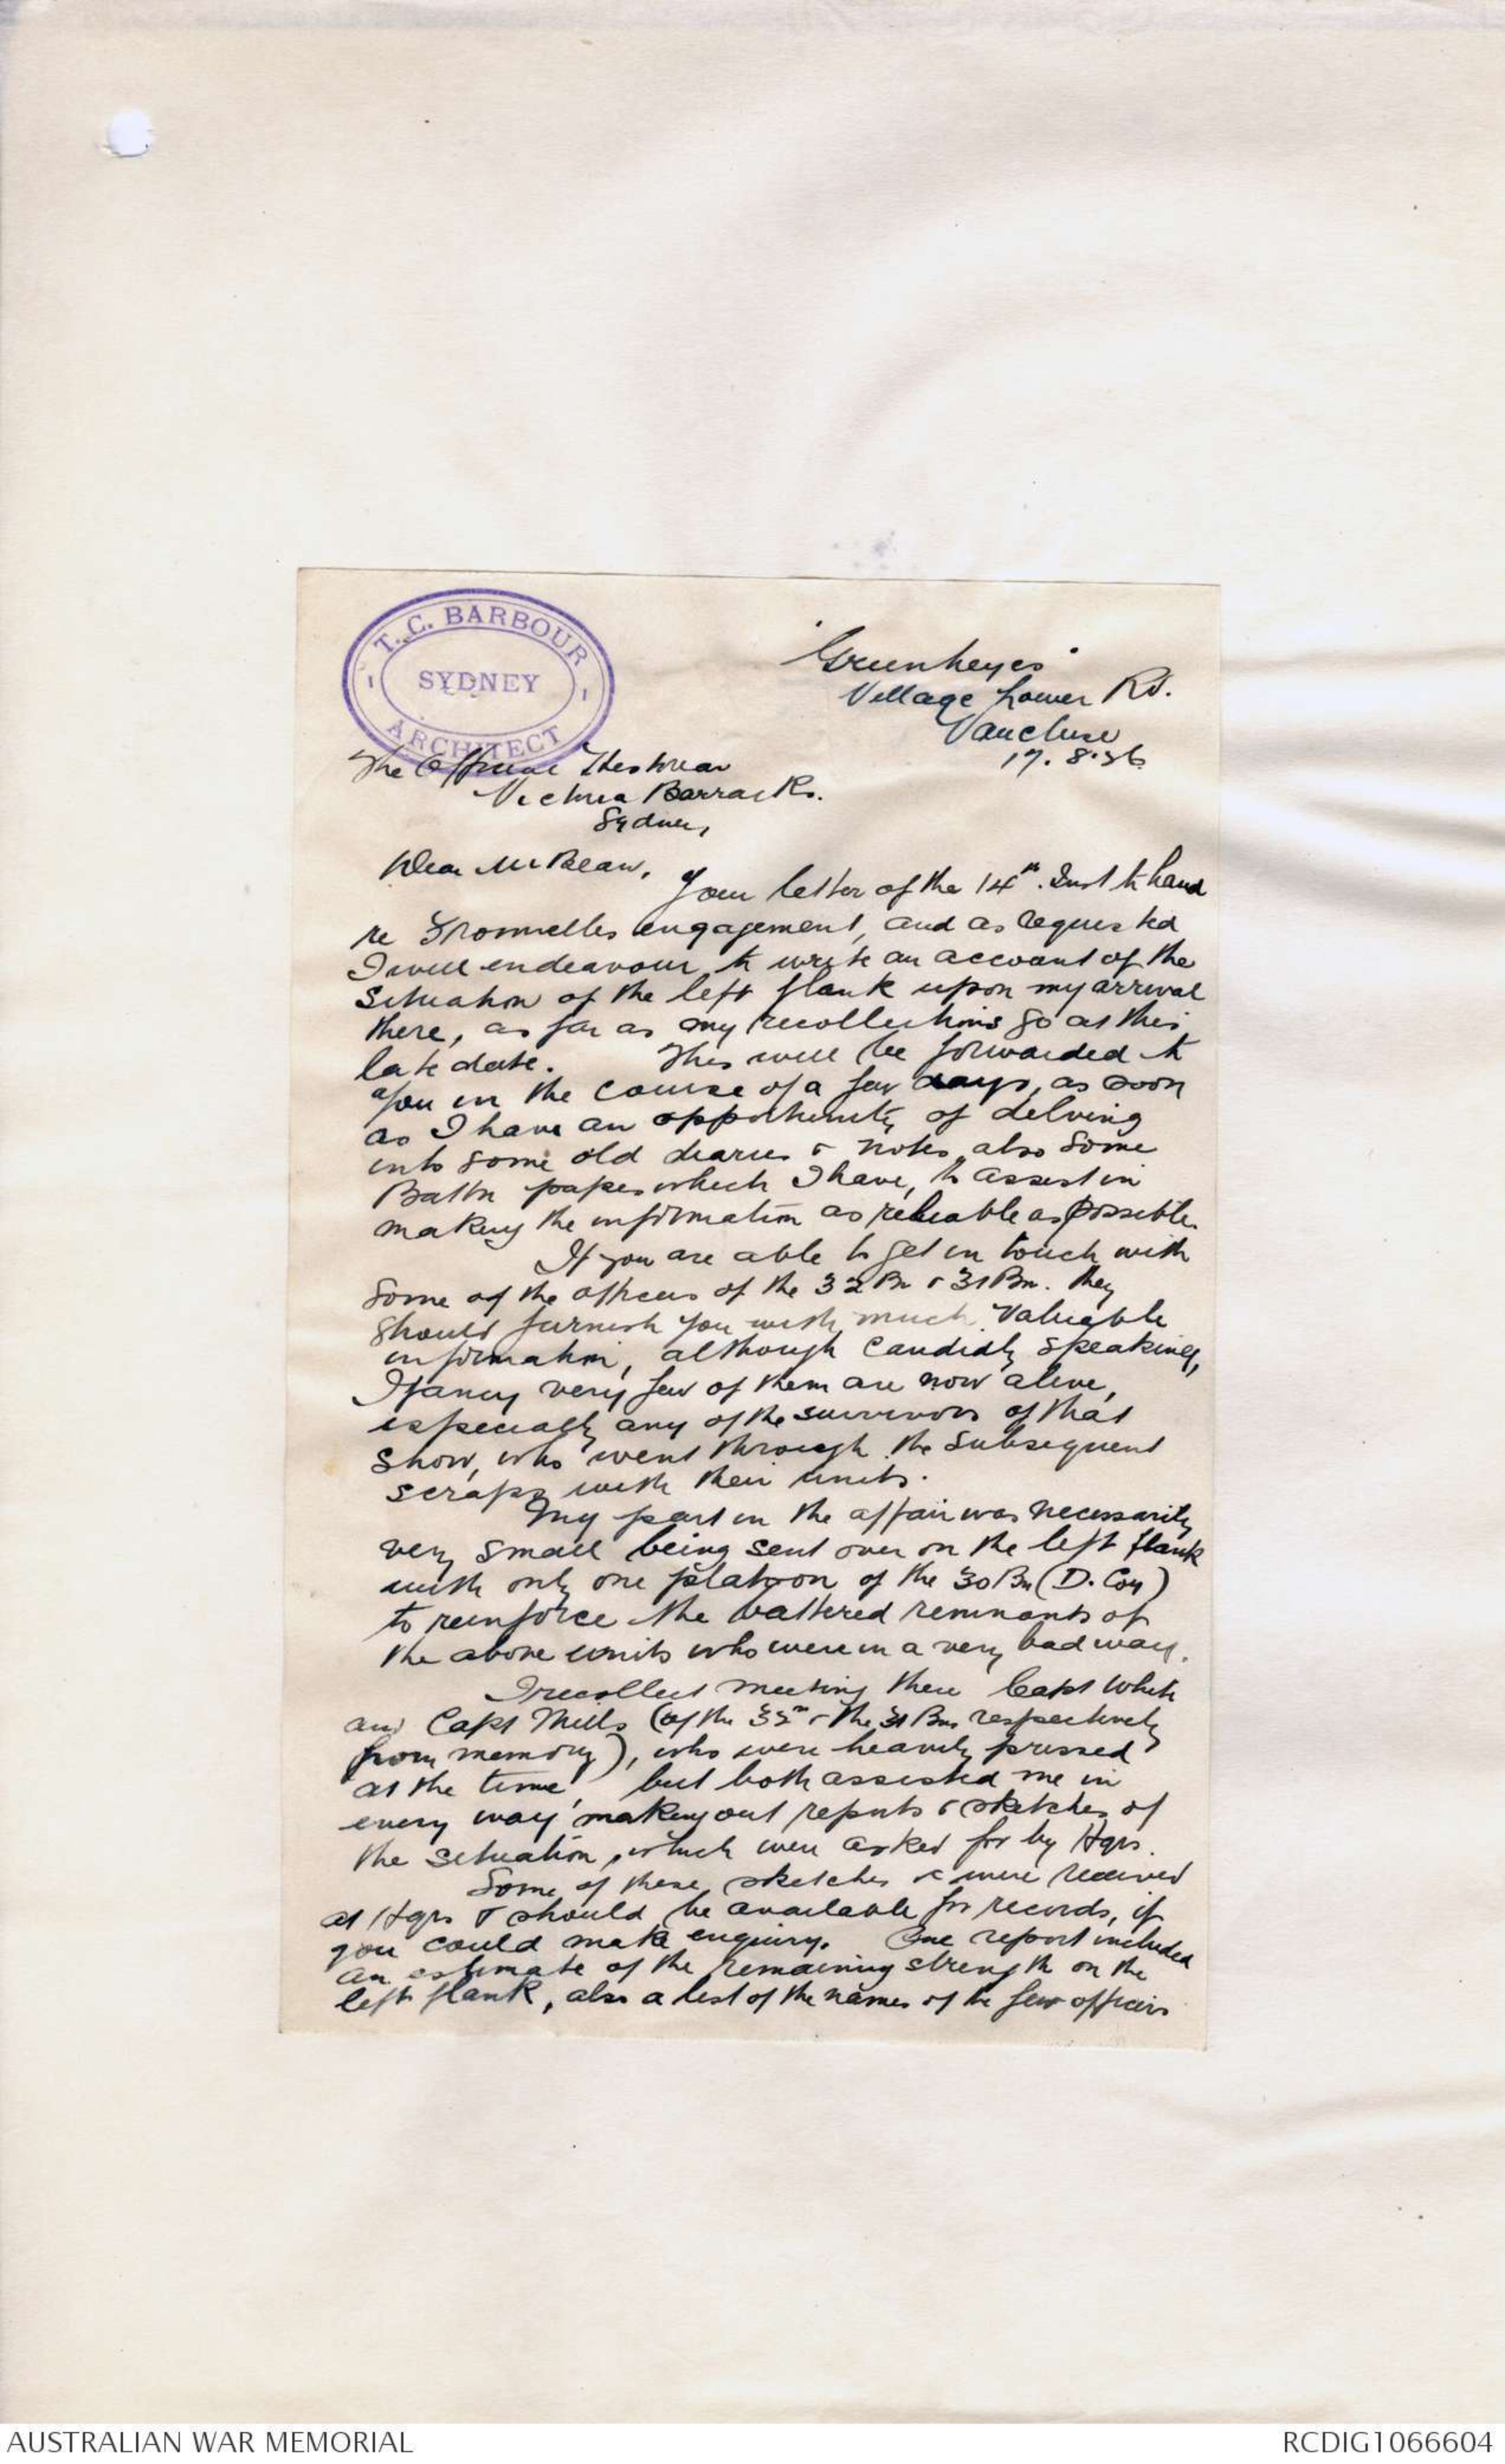 T. C. BARBOUR
SYDNEY
ARCHITECT
"Greenheyes"
Village Lower Rd.
Vaucluse
17. 8. 26
The Official Historian
Victoria Barracks.
Sydney,
Dear Mr Bean,
Your letter of the 14th. Inst to hand
re Fromelles engagement, and as requested
I will endeavour to write an account of the
situation of the left flank upon my arrival
there, as far as my recollections go at this
late date. This will be forwarded to
you in the course of a few days, as soon
as I have an opportunity of delving
into some old diaries & notes, also some
Battn papers which I have, to assist in
making the information as reliable as possible.
If you are able to get in touch with
some of the officers of the 32 Bn & 31 Bn. they
should furnish you with much valuable
information, although candidly speaking,
I fancy very few of them are now alive,
especially any of the survivors of that
show, who went through the subsequent
scraps with their units.
My part in the affair was necessarily
very small being sent over on the left flank
with only one platoon of the 30 Bn (D. Coy)
to reinforce the battered remnants of
the above units who were in a very bad way.
I recollect meeting there Capt White
and Capt Mills (of the 32nd & the 31 Bns respectively
from memory), who were heavily pressed
at the time, but both assisted me in
every way making out reports & sketches of
the situation, which were asked for by Hqrs.
Some of these sketches were received
at Hqrs & should be available for records, if
you could make enquiry. One report included
an estimate of the remaining strength on the
left flank, also a list of the names of the few officers
AUSTRALIAN WAR MEMORIAL
RCDIG1066604